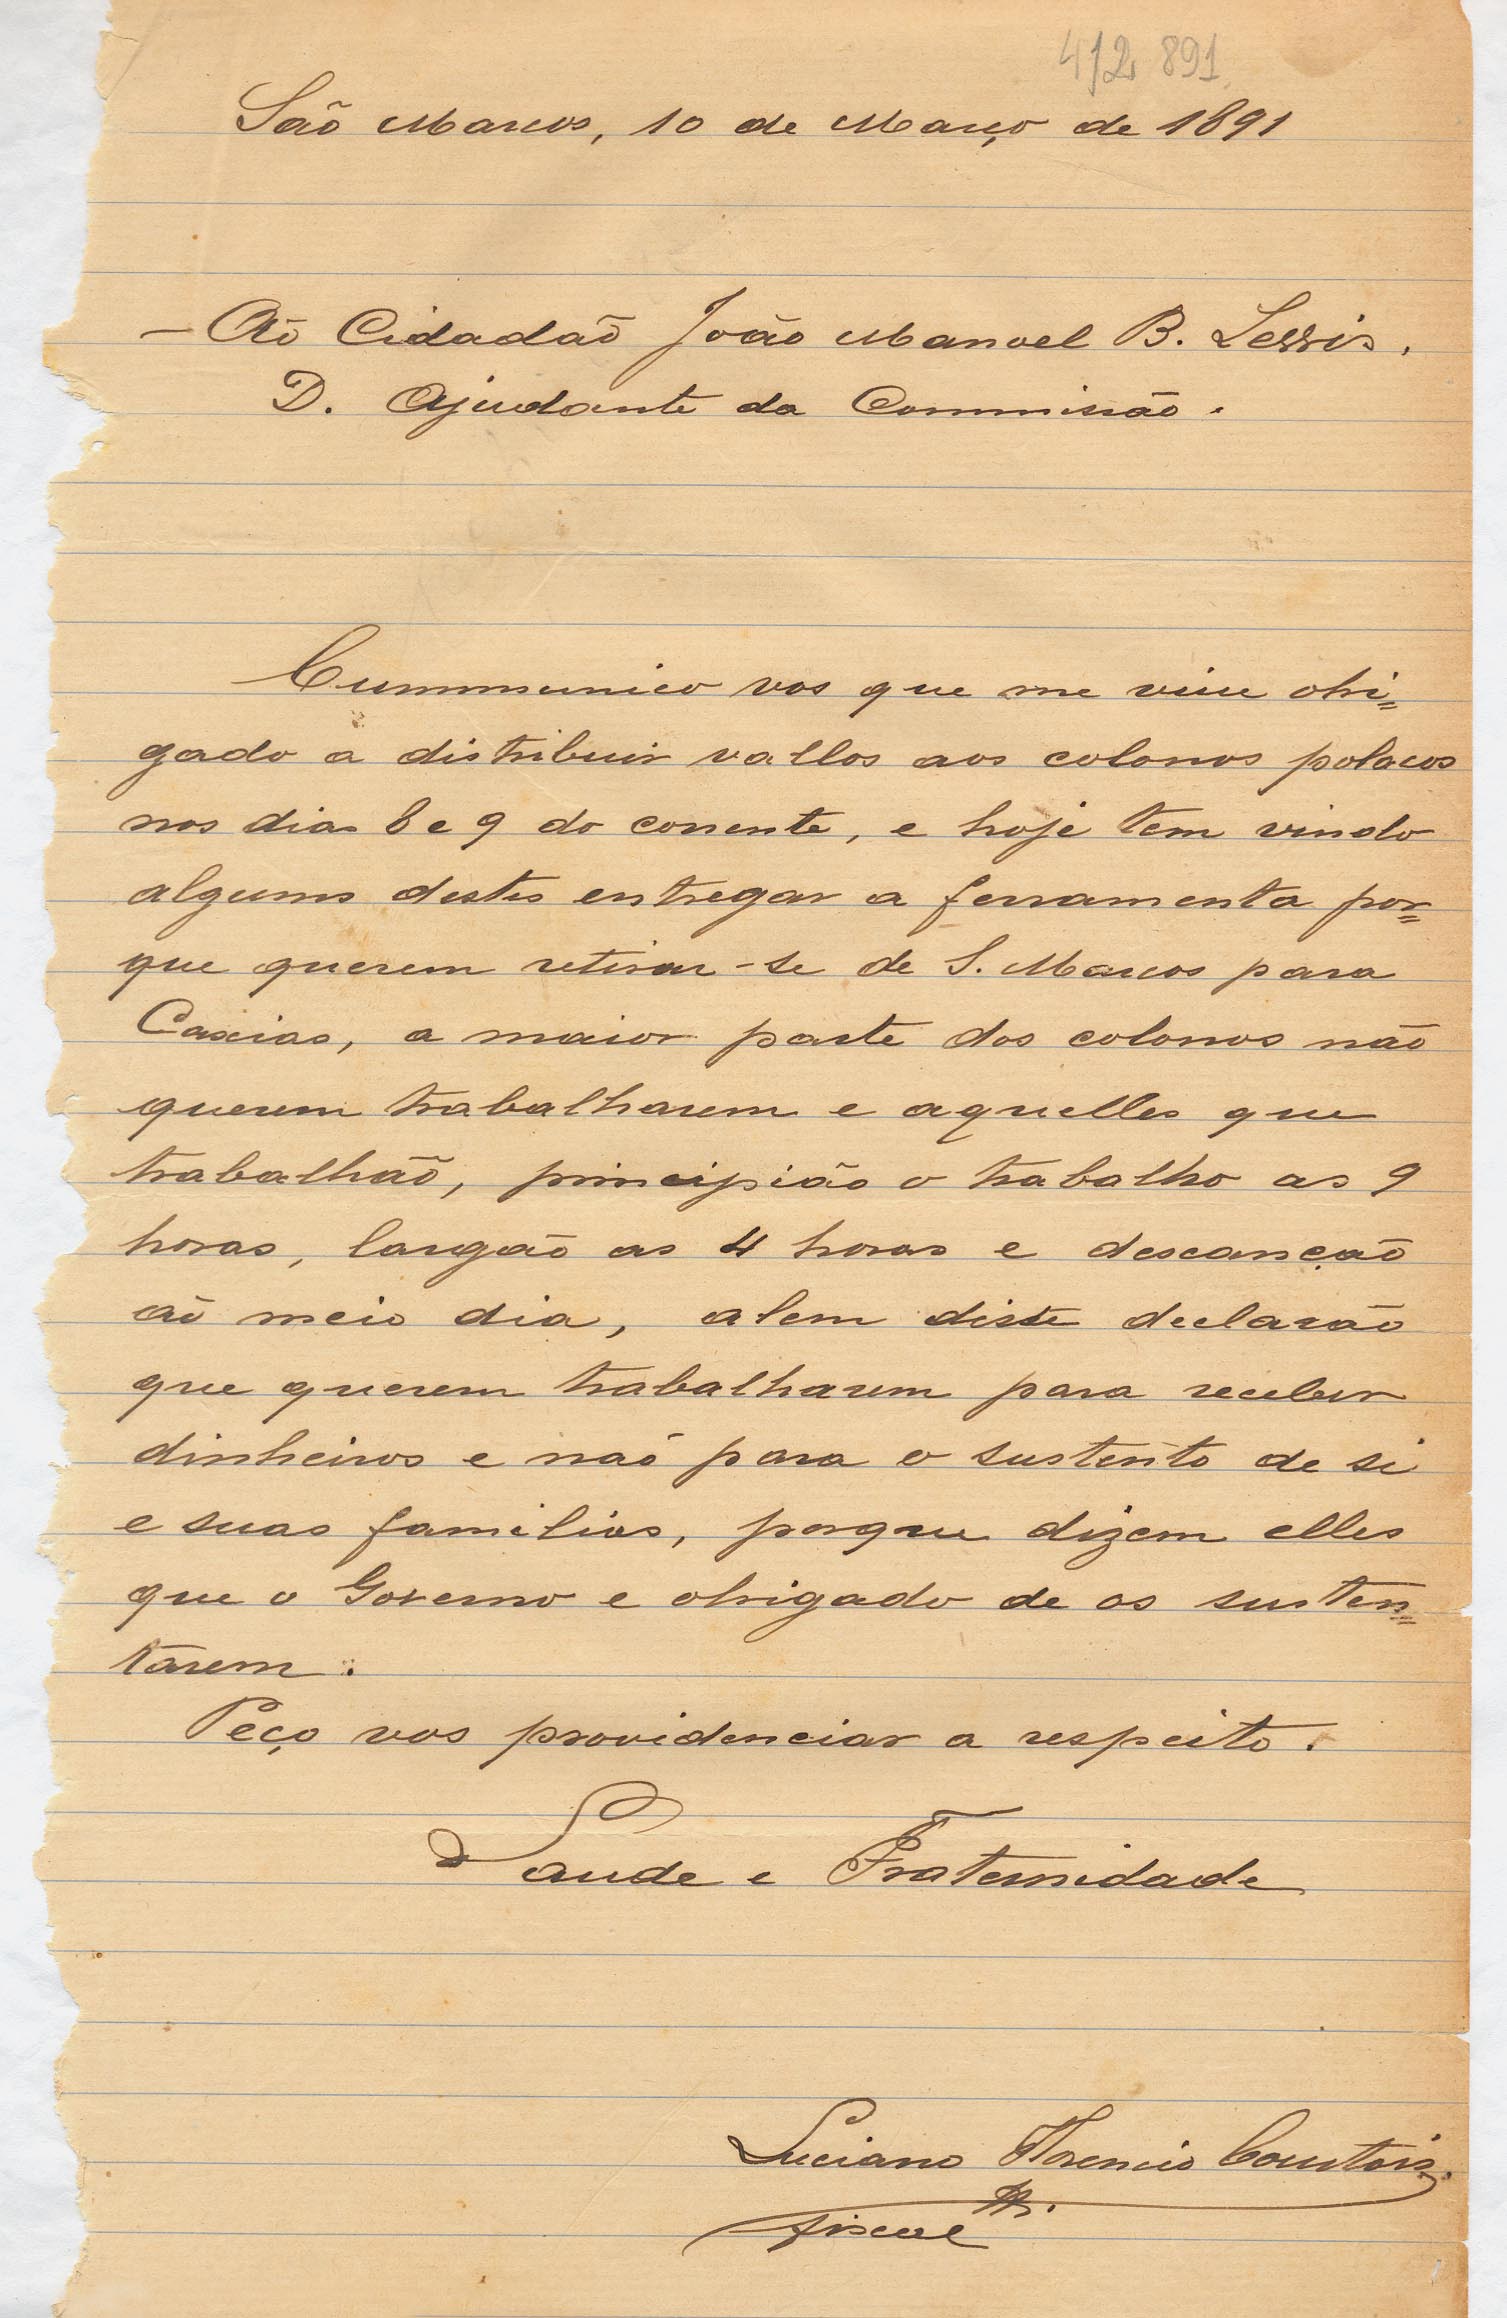 412 891
São Marcos, 10 de Março de 1891
— Aõ Cidadaõ João Manoel B.
D. Ajudante da Commissão.
Cummunico vos que me viu obri=
gado a distribuir vallos aos colonos polacos
nos dias 8 e 9 do corrente, e hoje tem vindo
alguns destes entregar a ferramenta por=
que querem retirar-se de S. Marcos para
Caxias, a maior parte dos colonos não
querem trabalharem e aquelles que
trabalhaõ, principião o trabalho as 9
horas, largão as 4 horas e descançaõ
aõ meio dia, alem disto declarão
que querem trabalharem para receber
dinheiros e naõ para o sustento de si
e suas familias, porque dizem elles
que o Governo e obrigado de os susten=
tarem.
Peço vos providenciar a respeito.
Saude e Fraternidade
Luciano Florencio Courtois
Fiscal